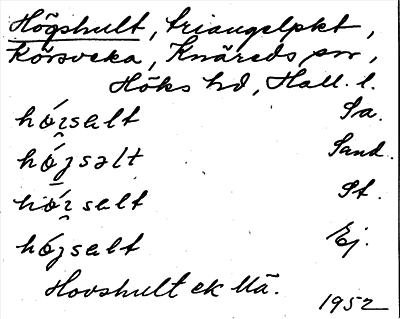 Högshult, triangelpkt,
Körsveka, Knäreds sn,
Höks hd, Hall. l.
hó̭ɪsalt Sa.
hó̭jsalt Sand.
hó̭ɪsalt St.
hó̭jsalt Ej.
Hovshult ek Mä.
1952